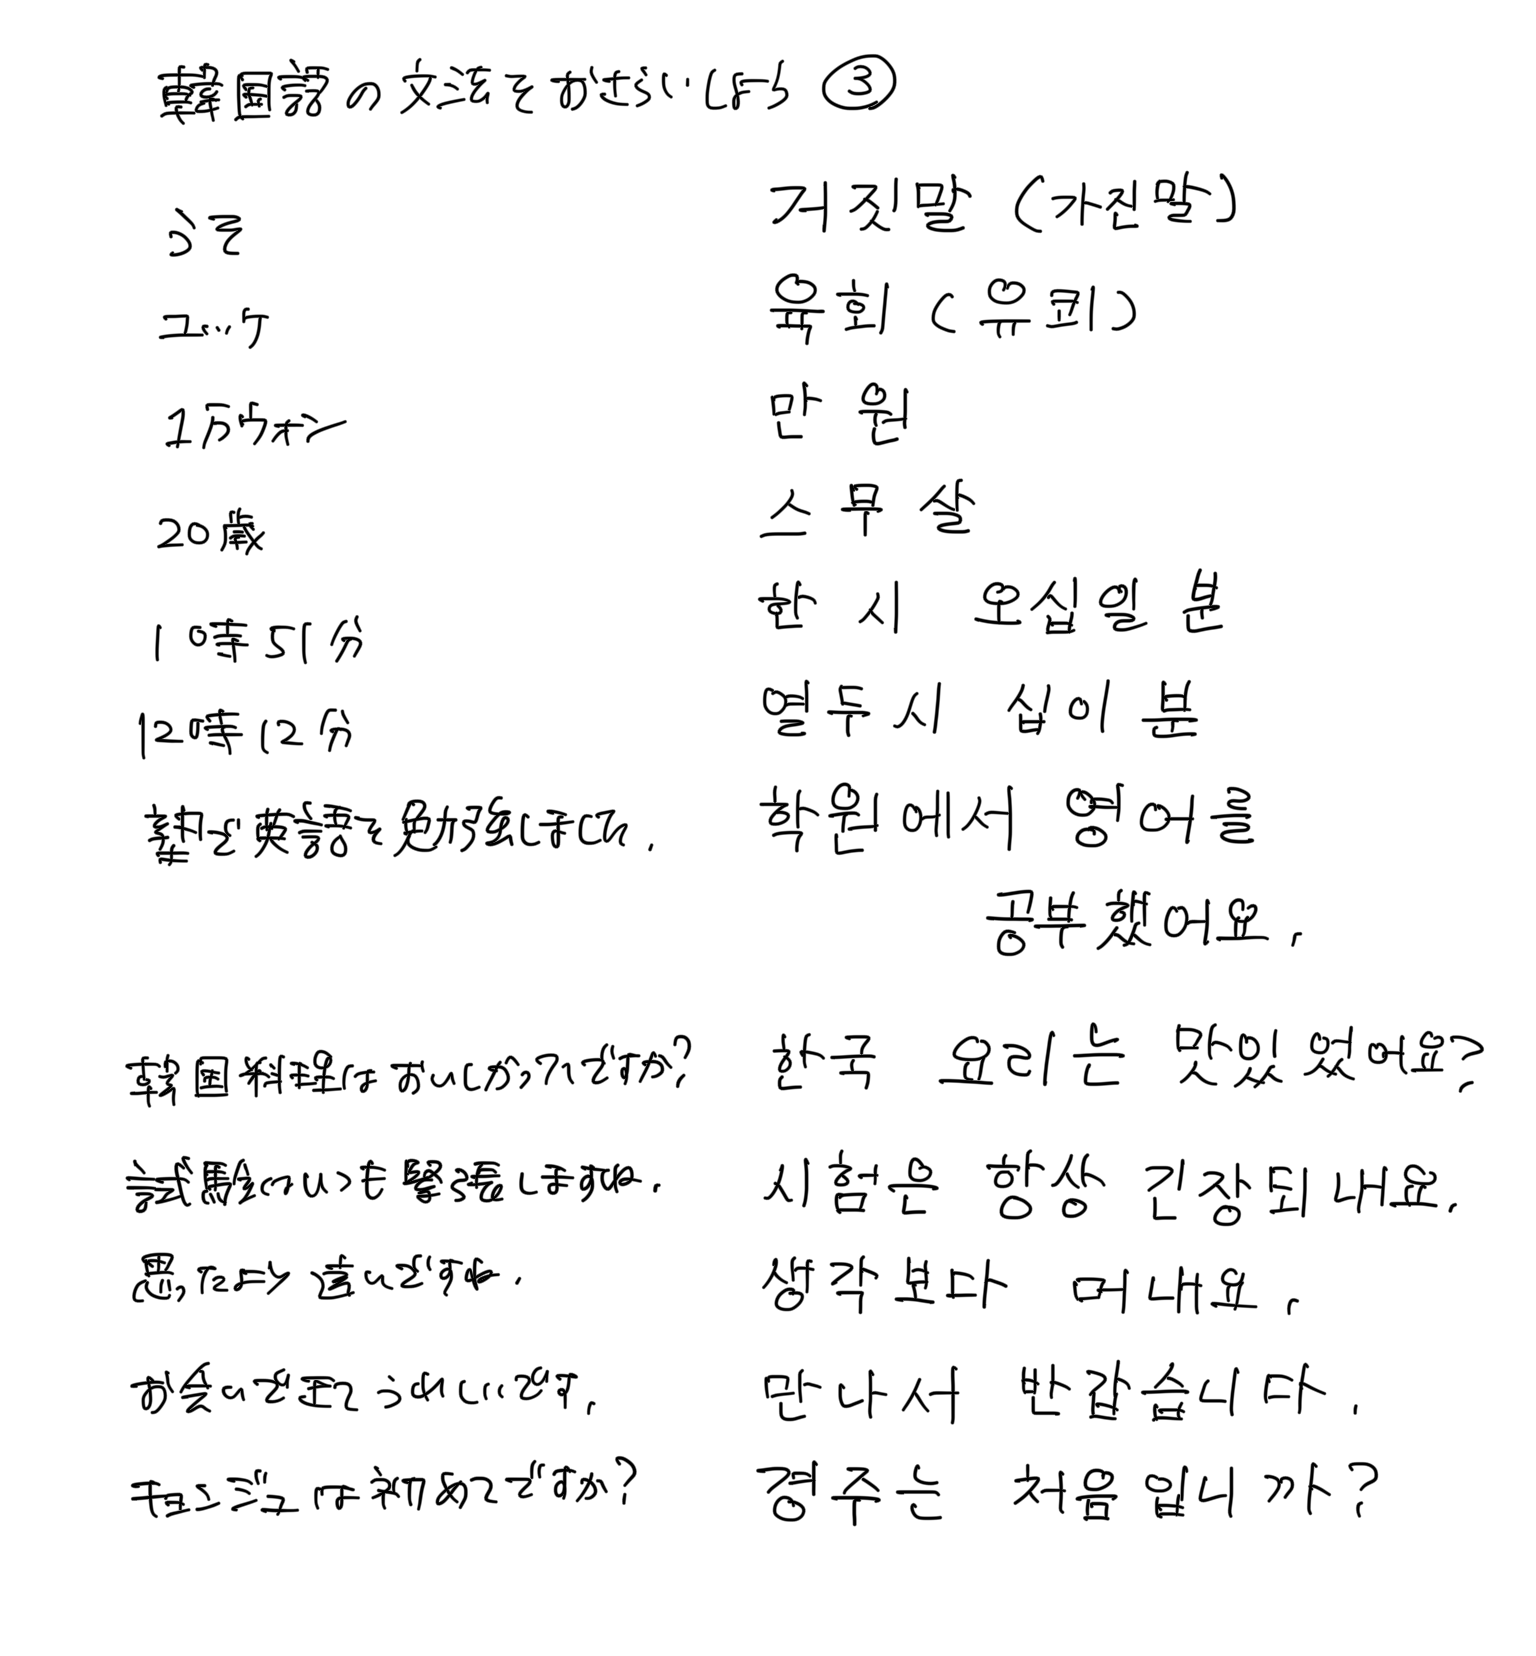 韓国語の文法をおさらいしよう ③
うそ 거짓말 (가진말)
ユッケ 육회 (유쾨)
1万ウォン 만 원
20歳 스무 살
10時51分 한 시 오십일 분
12時12分 열두시 십이 분
塾で英語を勉強しました. 학원에서 영어를
공부했어요.
韓国料理はおいしかったですか? 한국 요리는 맛있었어요?
試験はいつも緊張しますね. 시험은 항상 긴장되내요.
思ったより遠いですね. 생각보다 머내요.
お会いできてうれしいです. 만나서 반갑습니다.
キョンジュは初めてですか? 경주는 처음입니까?